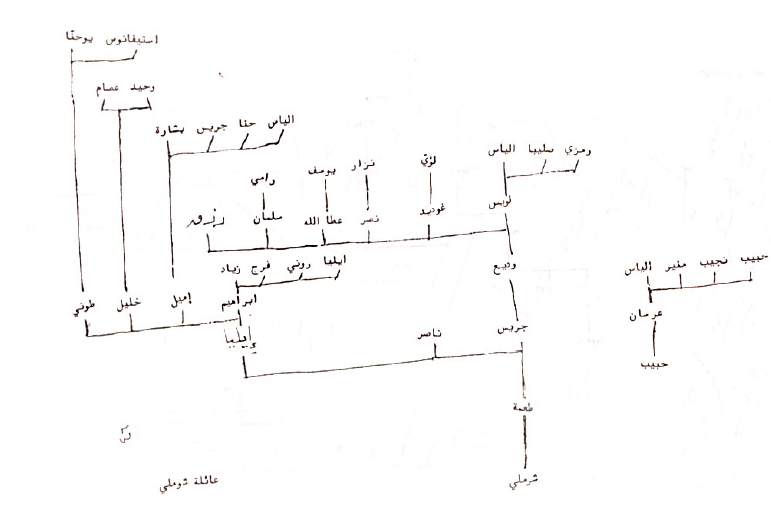 استيفانوس يوحنا
وحيد عصام
الياس حنا جريس بشارة
رمزي سليبا الياس
لؤي
نزار
يوسف
رامي
لويس
غوتيد
نصر
عطا الله
سلمان
رزق
حبيب نجيب منير الياس
وديع
ايليا روني فرح زياد
ابراهيم
إميل
خليل
طوني
عرسان
إيليا
ناصر
جريس
حبيب
طعمة
شرملي
عائلة شوملي